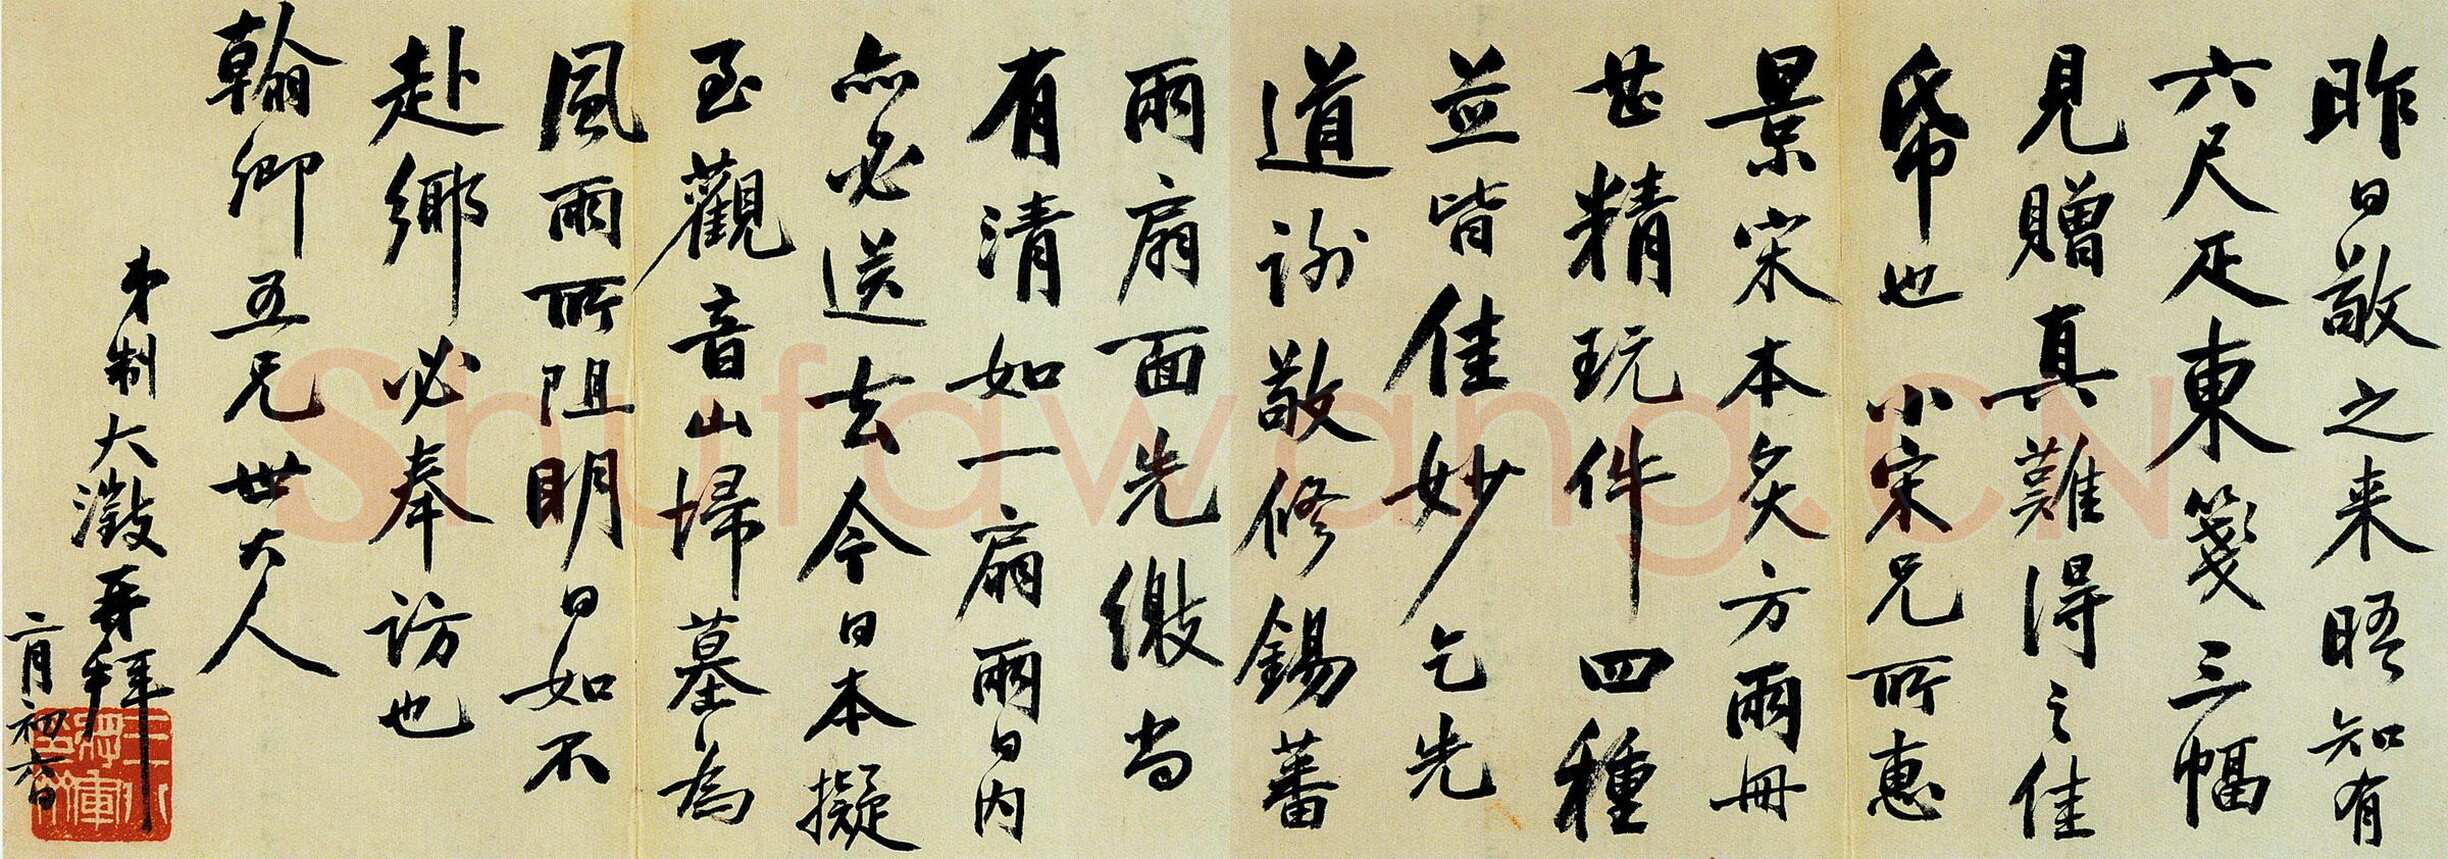 昨日敬之来晤知有
六尺疋東箋三幅
見贈真難得之佳
帋也小宋兄所惠
景宋本炙方兩冊
甚精玩件四種
並皆佳妙乞先
道謝敬修錫蕃
兩扇面先繳尚
有清如一扇兩日内
亦必送去今日本擬
至觀音山掃墓為
風雨所阻明日如不
赴鄉必奉訪也
翰卿五兄世大人
弟制大澂再拜
二月初六日
Shufawang.CN